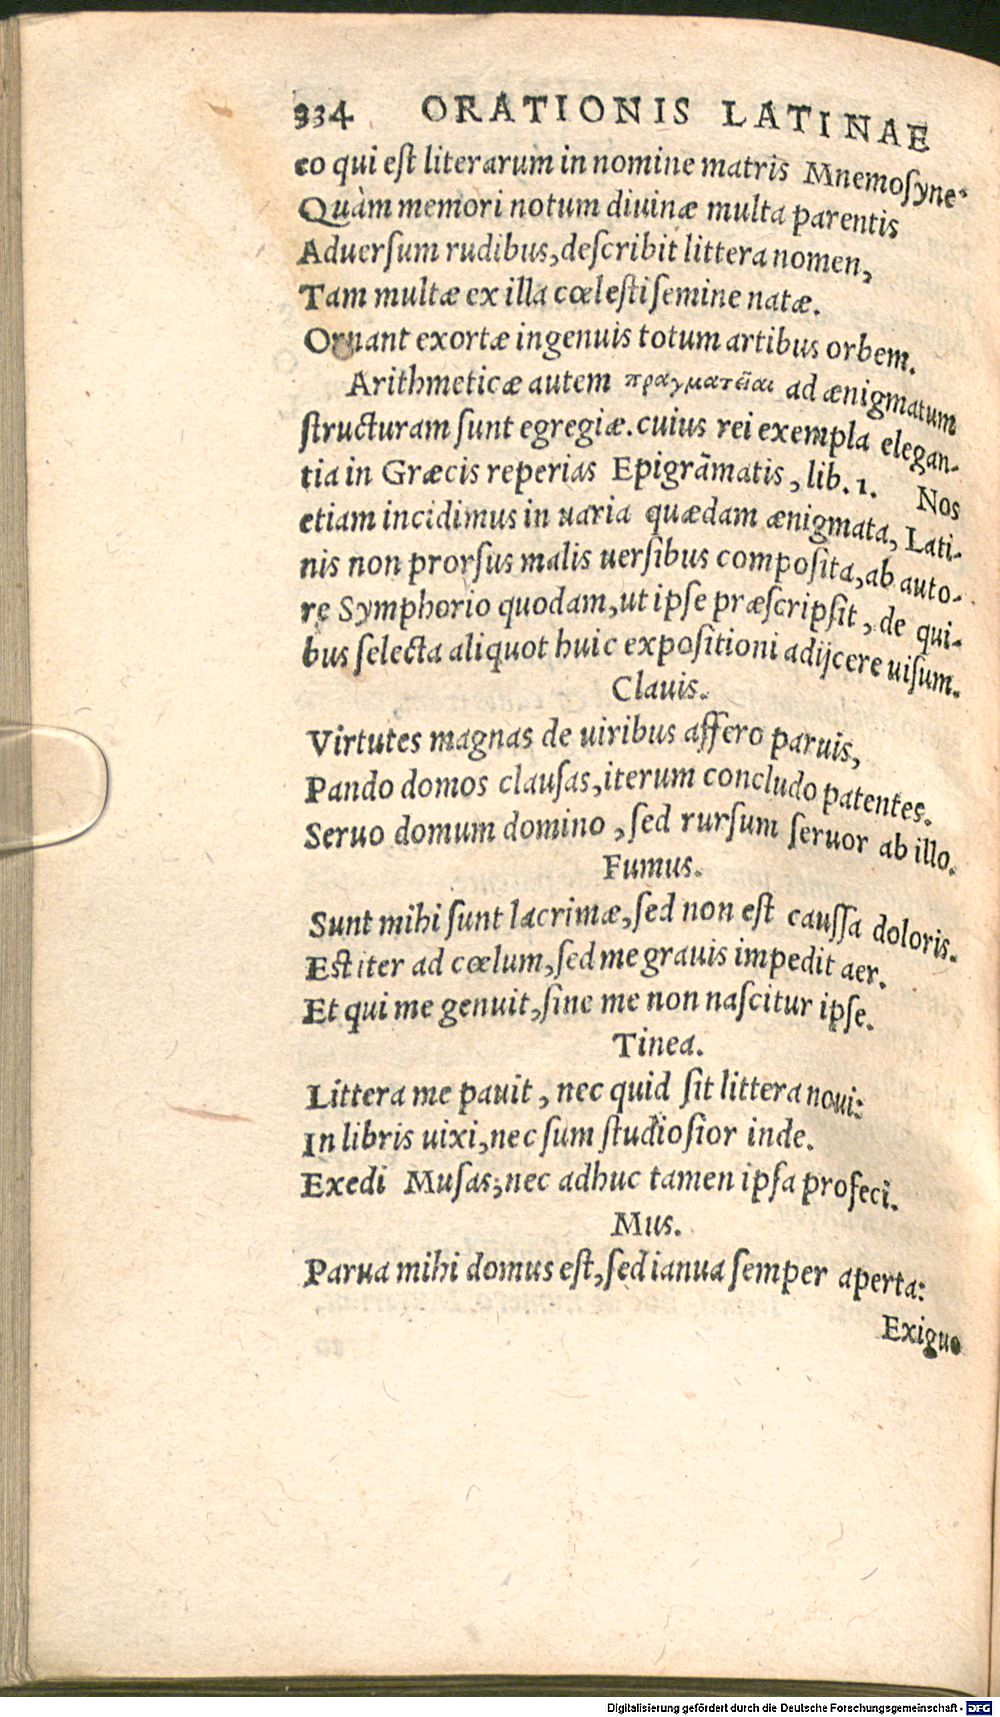 334 ORATIONIS LATINAE
eo qui est literarum in nomine matris Mnemosyne.
Quàm memori notum diuinæ multa parentis
Aduersum rudibus, describit littera nomen,
Tam multæ ex illa cœlesti semine natæ.
Ornant exortæ ingenuis totum artibus orbem.
Arithmeticæ autem πραγματεῖαι ad ænigmatum
structuram sunt egregiæ. cuius rei exempla elegan-
tia in Græcis reperias Epigrãmatis, lib. 1. Nos
etiam incidimus in uaria quædam ænigmata, Lati-
nis non prorsus malis uersibus composita, ab auto-
re Symphorio quodam, ut ipse præscripsit, de qui-
bus selecta aliquot huic expositioni adijcere uisum.
Clauis.
Virtutes magnas de uiribus affero paruis,
Pando domos clausas, iterum concludo patentes.
Seruo domum domino, sed rursum seruor ab illo.
Fumus.
Sunt mihi sunt lacrimæ, sed non est caussa doloris.
Est iter ad cœlum, sed me grauis impedit aer.
Et qui me genuit, sine me non nascitur ipse.
Tinea.
Littera me pauit, nec quid sit littera noui:
In libris uixi, nec sum studiosior inde.
Exedi Musas; nec adhuc tamen ipsa profeci.
Mus.
Parua mihi domus est, sed ianua semper aperta:
Exiguo
Digitalisierung gefördert durch die Deutsche Forschungsgemeinschaft - DFG